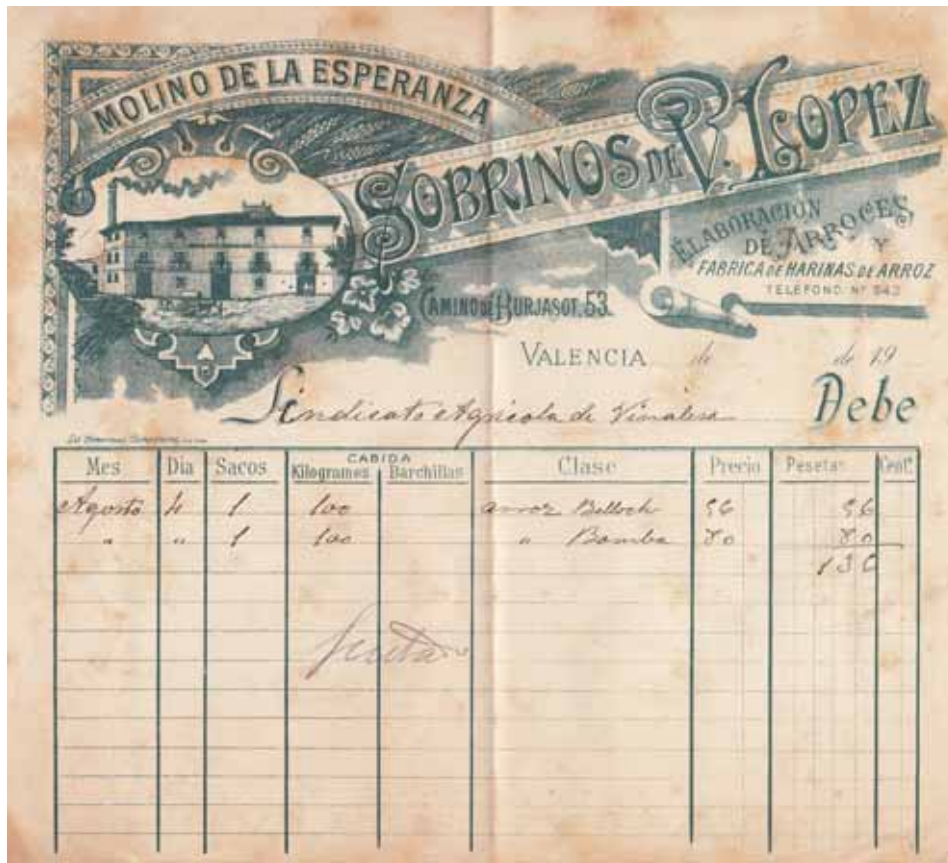 MOLINO DE LA ESPERANZA
SOBRINOS DE V. LOPEZ
ELABORACIÓN
DE ARROCES
Y
FABRICA DE HARINAS DE ARROZ
TELEFONO. Nº 543
CAMINO DE BURJASOT, 53.
VALENCIA de de 19
Sindicato Agricola de Vinalesa Debe
Mes Dia Sacos CABIDA Kilogramos Barchillas Clase Precio Pesetas Cent.s
Agosto 4 1 100 arroz Belloch 56 56
" " 1 100 " Bomba 80 80
136